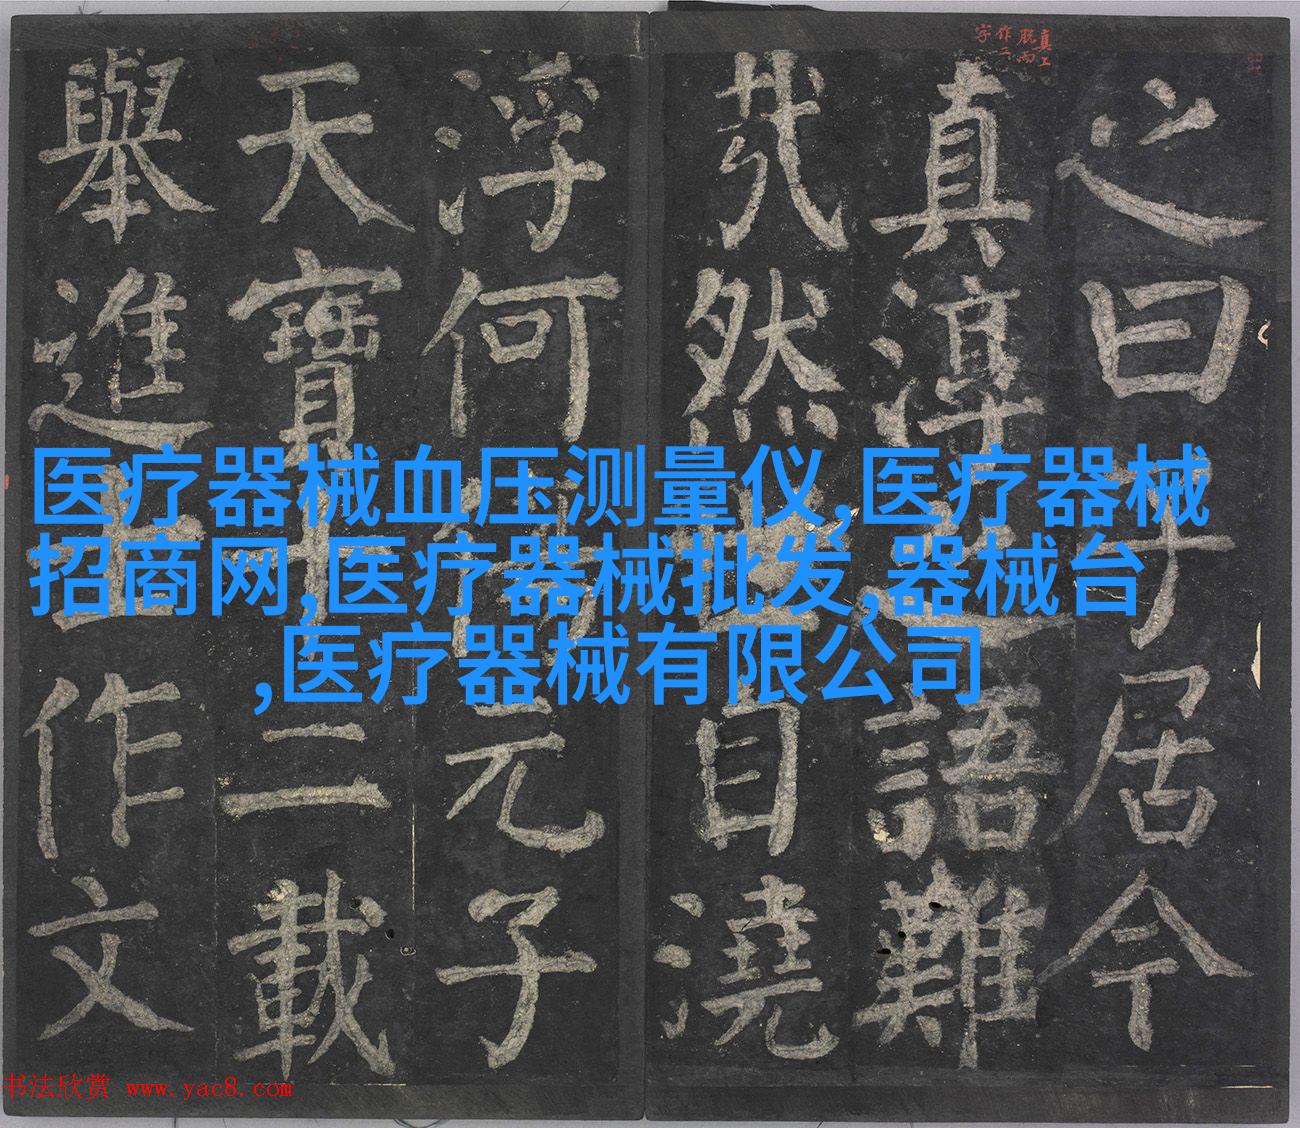 真上
脫而
作二
字
之曰子居今
真淳之語難
哉然世自澆
浮何傷元子
天寶十二載
舉進士作文
医疗器械血压测量仪,医疗器械
招商网,医疗器械批发,器械台
,医疗器械有限公司
书法欣赏 www.yac8.com